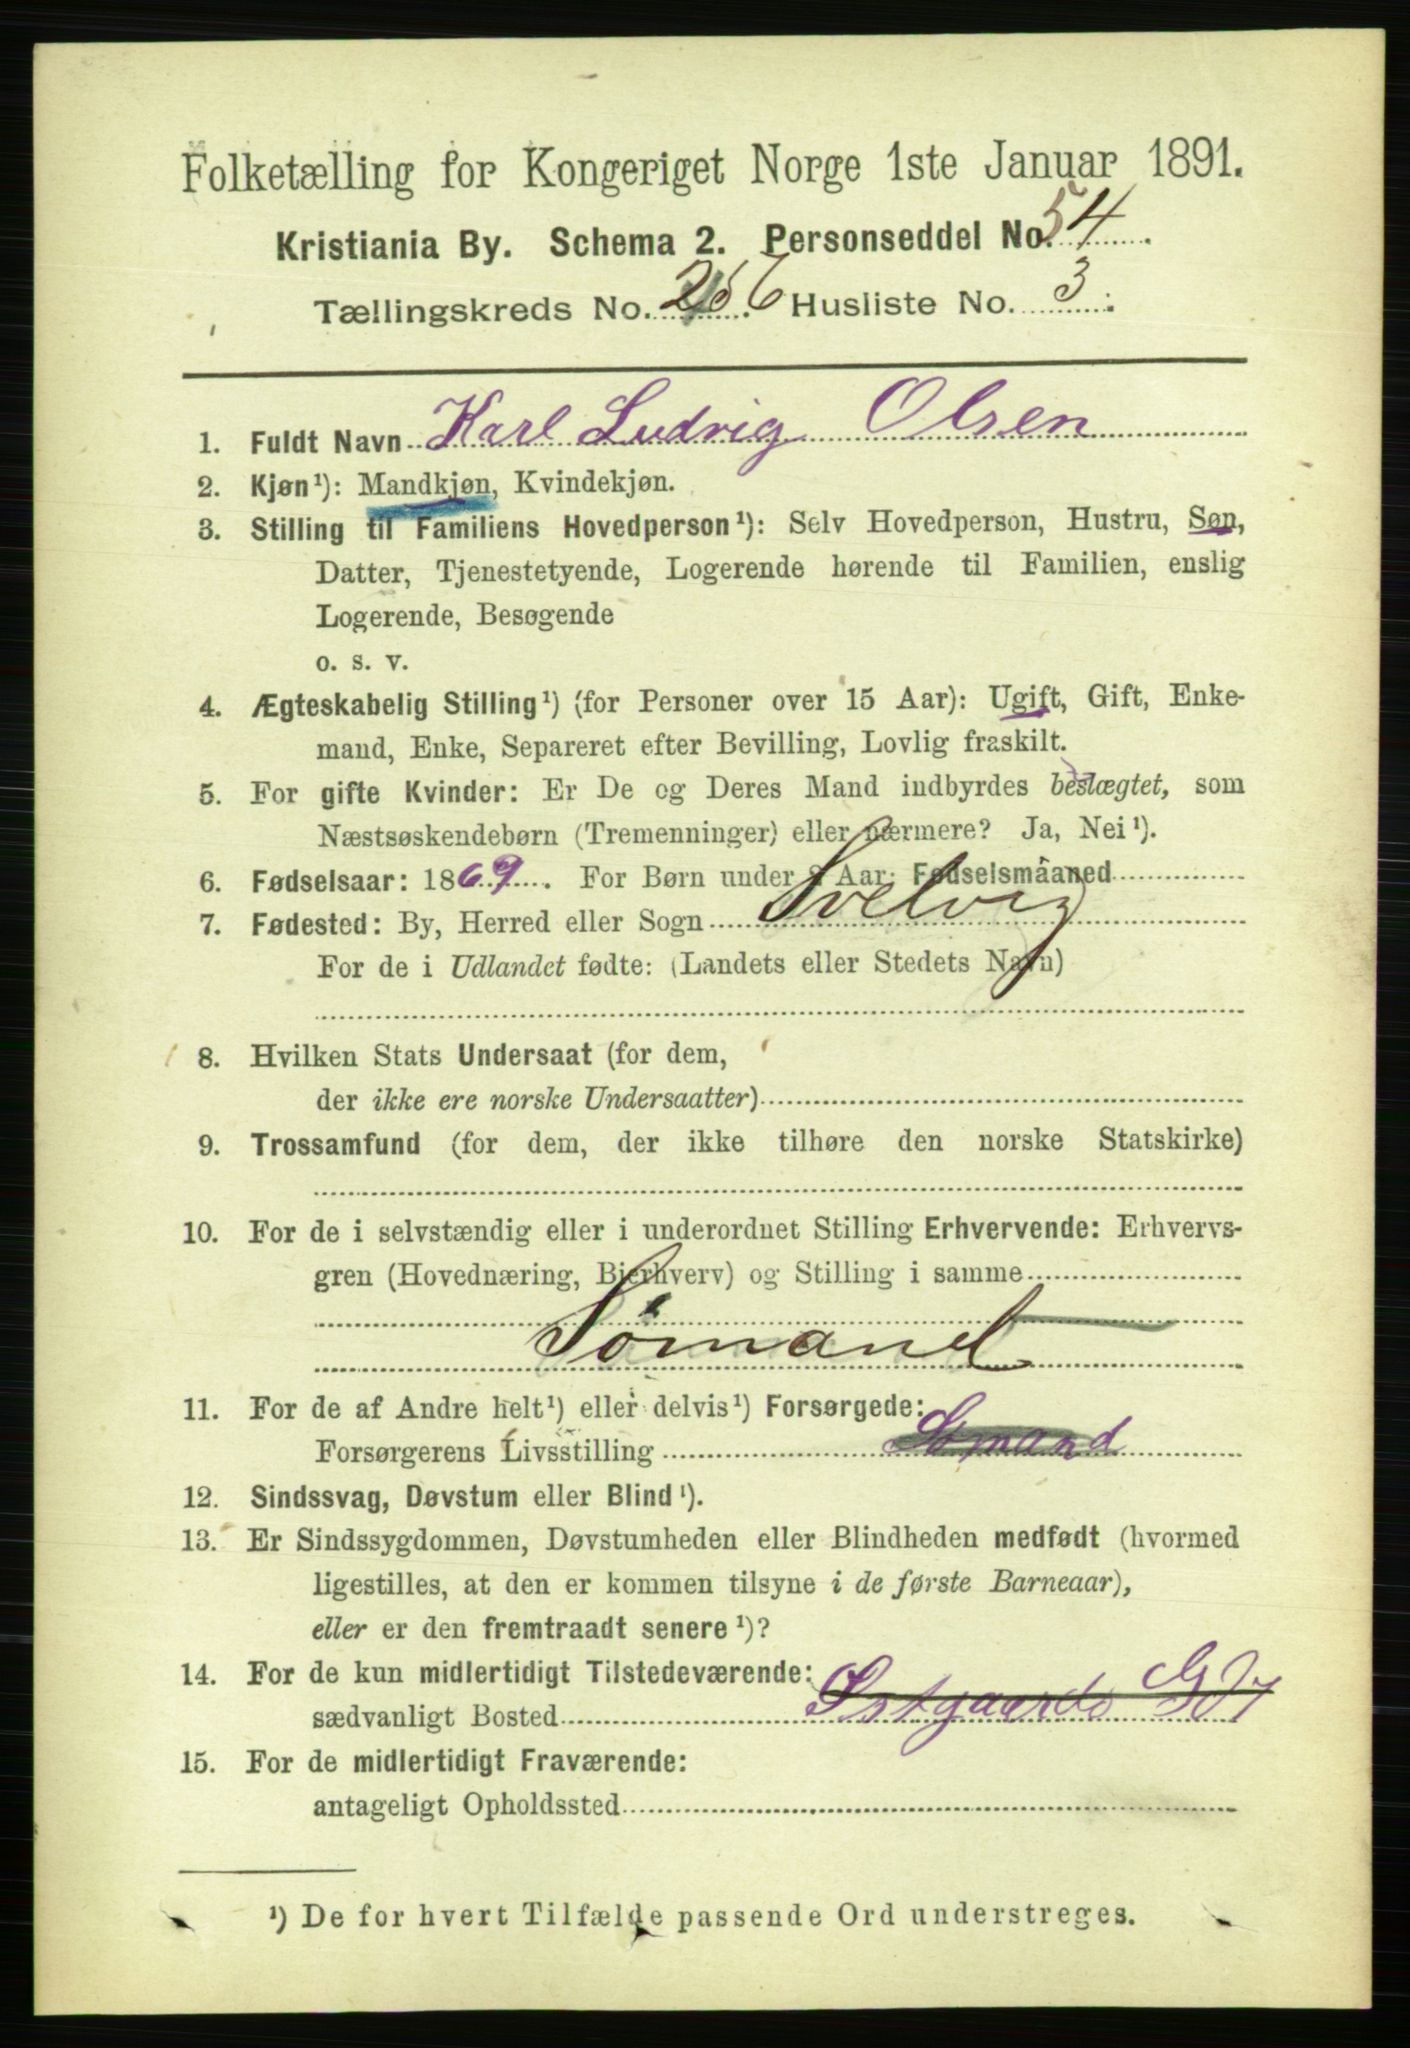 Folketælling for Kongeriget Norge 1ste Januar 1891.
Kristiania By. Schema 2. Personseddel No. 54
Tællingskreds No. 256. Husliste No. 3.
1. Fuldt Navn Karl Ludvig Olsen
2. Kjøn¹): Mandkjøn, Kvindekjøn.
3. Stilling til Familiens Hovedperson¹): Selv Hovedperson, Hustru, Søn,
Datter, Tjenestetyende, Logerende hørende til Familien, enslig
Logerende, Besøgende
o. s. v.
4. Ægteskabelig Stilling¹) (for Personer over 15 Aar): Ugift, Gift, Enke-
mand, Enke, Separeret efter Bevilling, Lovlig fraskilt.
5. For gifte Kvinder: Er De og Deres Mand indbyrdes beslægtet, som
Næstsøskendebørn (Tremenninger) eller nærmere? Ja, Nei¹).
6. Fødselsaar: 1869. For Børn under 2 Aar: Fødselsmåaned
7. Fødested: By, Herred eller Sogn Svelvig
For de i Udlandet fødte: (Landets eller Stedets Navn)
8. Hvilken Stats Undersaat (for dem,
der ikke ere norske Undersaatter)
9. Trossamfund (for dem, der ikke tilhøre den norske Statskirke)
10. For de i selvstændig eller i underordnet Stilling Erhvervende: Erhvervs-
gren (Hovednæring, Bierhverv) og Stilling i samme
Sømand
11. For de af Andre helt¹) eller delvis¹) Forsørgede:
Forsørgerens Livsstilling Sømand
12. Sindssvag, Døvstum eller Blind¹).
13. Er Sindssygdommen, Døvstumheden eller Blindheden medfødt (hvormed
ligestilles, at den er kommen tilsyne i de første Barneaar),
eller er den fremtraadt senere¹)?
14. For de kun midlertidigt Tilstedeværende:
sædvanligt Bosted Østgaards
15. For de midlertidigt Fraværende:
antageligt Opholdssted
¹) De for hvert Tilfælde passende Ord understreges.